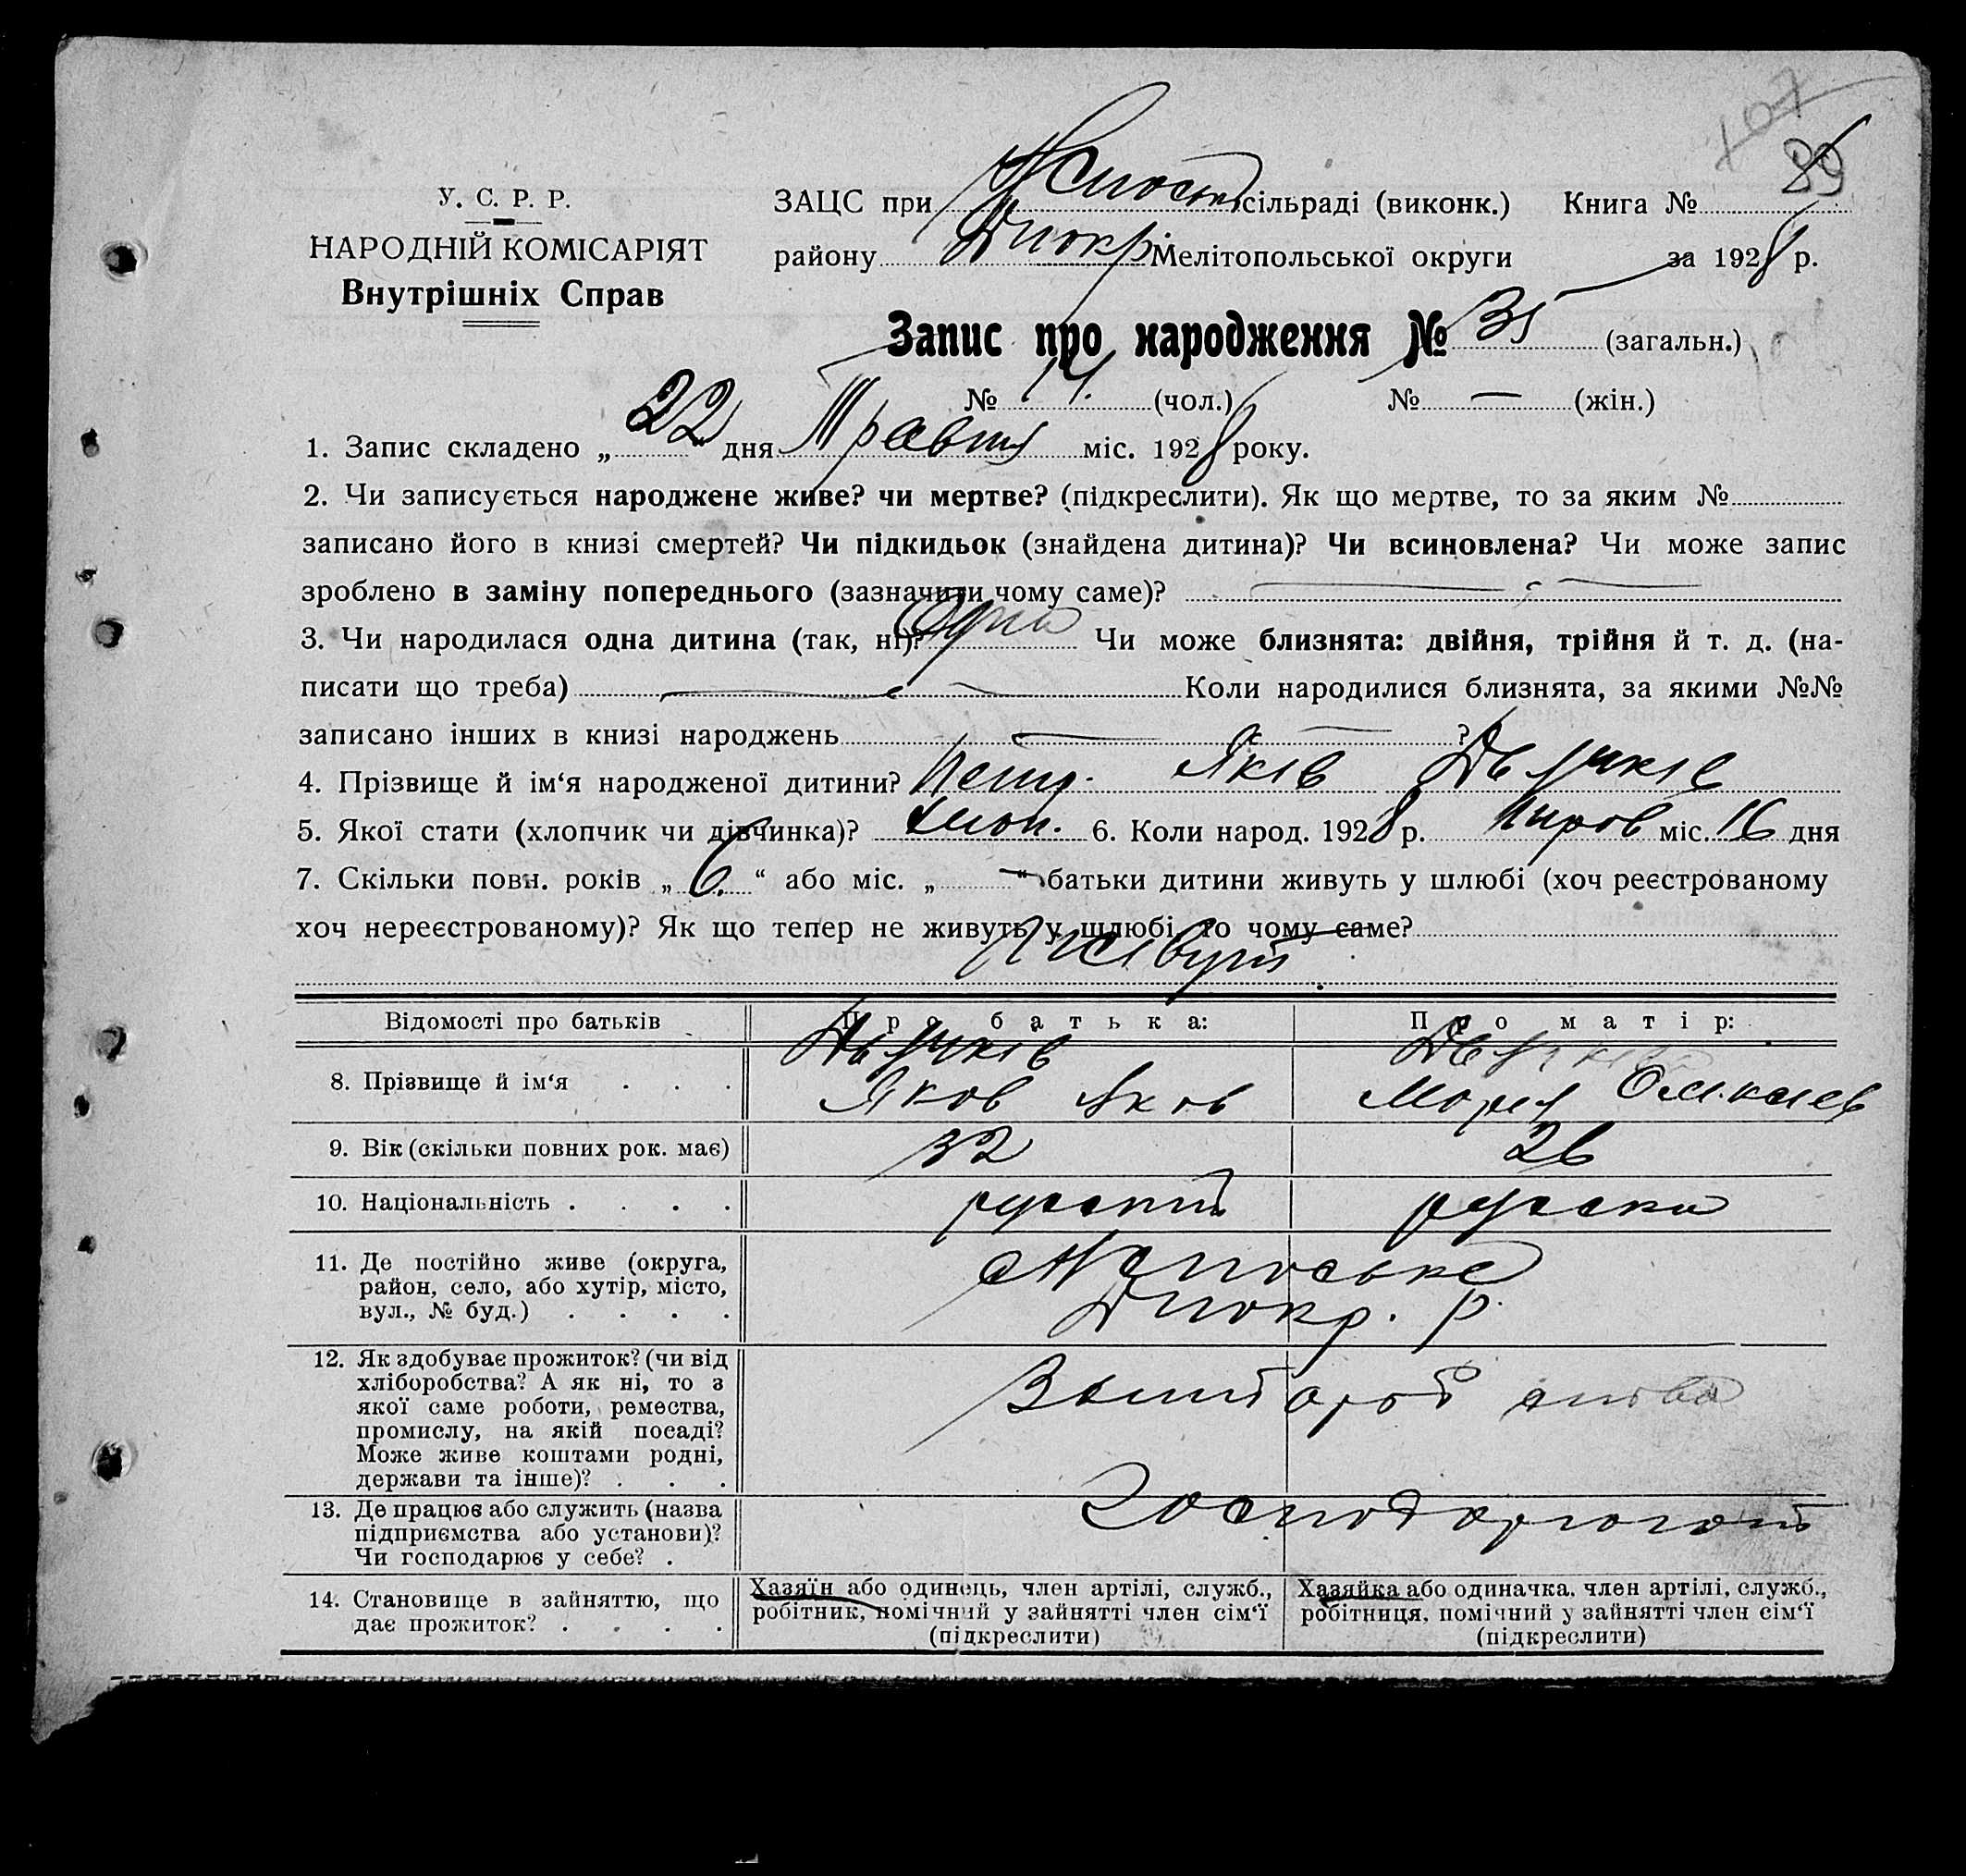 107
89
У. С. Р. Р.
НАРОДНІЙ КОМІСАРІЯТ
Внутрішніх Справ
ЗАЦС при сільраді (виконк.) Книга №
району Дніокр. Мелітопольської округи за 1928 р.
Запис про народження № 35 (загальн.)
№ 14. (чол.) № — (жін.)
1. Запис складено „22" дня Травня міс. 1928 року.
2. Чи записується народжене живе? чи мертве? (підкреслити). Як що мертве, то за яким №
записано його в книзі смертей? Чи підкидьок (знайдена дитина)? Чи всиновлена? Чи може запис
зроблено в заміну попереднього (зазначити чому саме)?
3. Чи народилася одна дитина (так, ні)? Одна Чи може близнята: двійня, трійня й т. д. (на-
писати що треба) Коли народилися близнята, за якими №№
записано інших в книзі народжень ?
4. Прізвище й ім‘я народженої дитини? Петр. Яків
5. Якої стати (хлопчик чи дівчинка)? хлоп. 6. Коли народ. 1928 р. міс. 16 дня
7. Скільки повн. років „6." або міс. „—" батьки дитини живуть у шлюбі (хоч реєстрованому
хоч нереєстрованому)? Як що тепер не живуть у шлюбі, то чому саме?
Живуть
Відомості про батьків Про батька: Про матір:
8. Прізвище й ім‘я . . . Яков Яков Мария
9. Вік (скільки повних рок. має) 32 26
10. Національність . . . . руский руска
11. Де постійно живе (округа,
район, село, або хутір, місто,
вул., № буд.) . . . .
Дніокр. р.
12. Як здобуває прожиток? (чи від
хліборобства? А як ні, то з
якої саме роботи, ремества,
промислу, на якій посаді?
Може живе коштами родні,
держави та інше)? . . .
13. Де працює або служить (назва
підприємства або установи)?
Чи господарює у себе? .
14. Становище в зайняттю, що
дає прожиток? . . . .
Хазяїн або одинець, член артілі, служб.,
робітник, помічний у зайнятті член сім‘ї
(підкреслити)
Хазяйка або одиначка, член артілі, служб.,
робітниця, помічний у зайнятті член сім‘ї
(підкреслити)